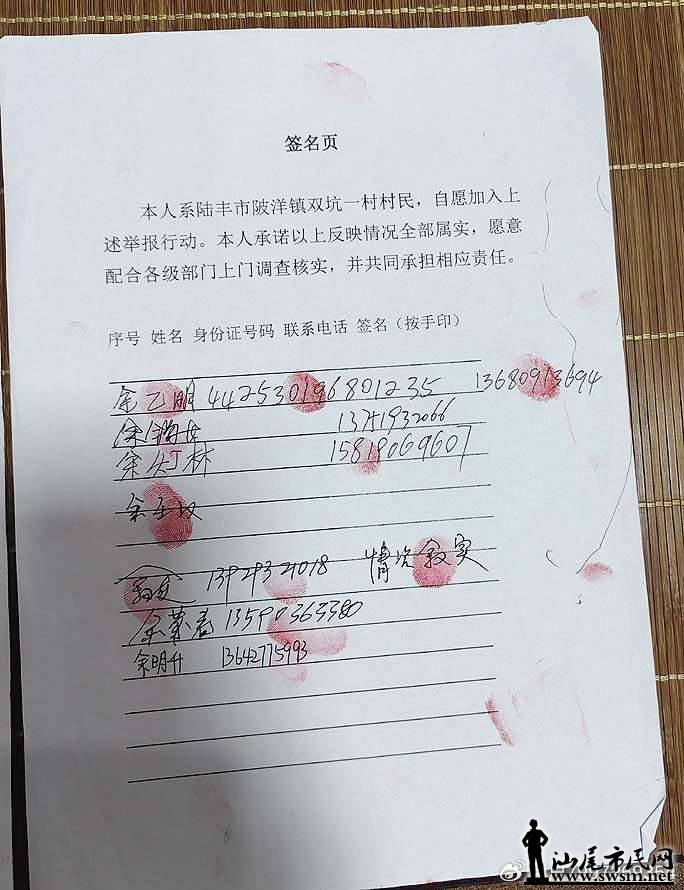 签名页
本人系陆丰市陂洋镇双坑一村村民，自愿加入上
述举报行动。本人承诺以上反映情况全部属实，愿意
配合各级部门上门调查核实，并共同承担相应责任。
序号 姓名 身份证号码 联系电话 签名（按手印）
余乙明 442530196801235 13680913694
余
余 林 15819069607
余
13929321018 情况
余 春 13590363380
余明升 13642775993
汕尾市民网
www.swsm.net